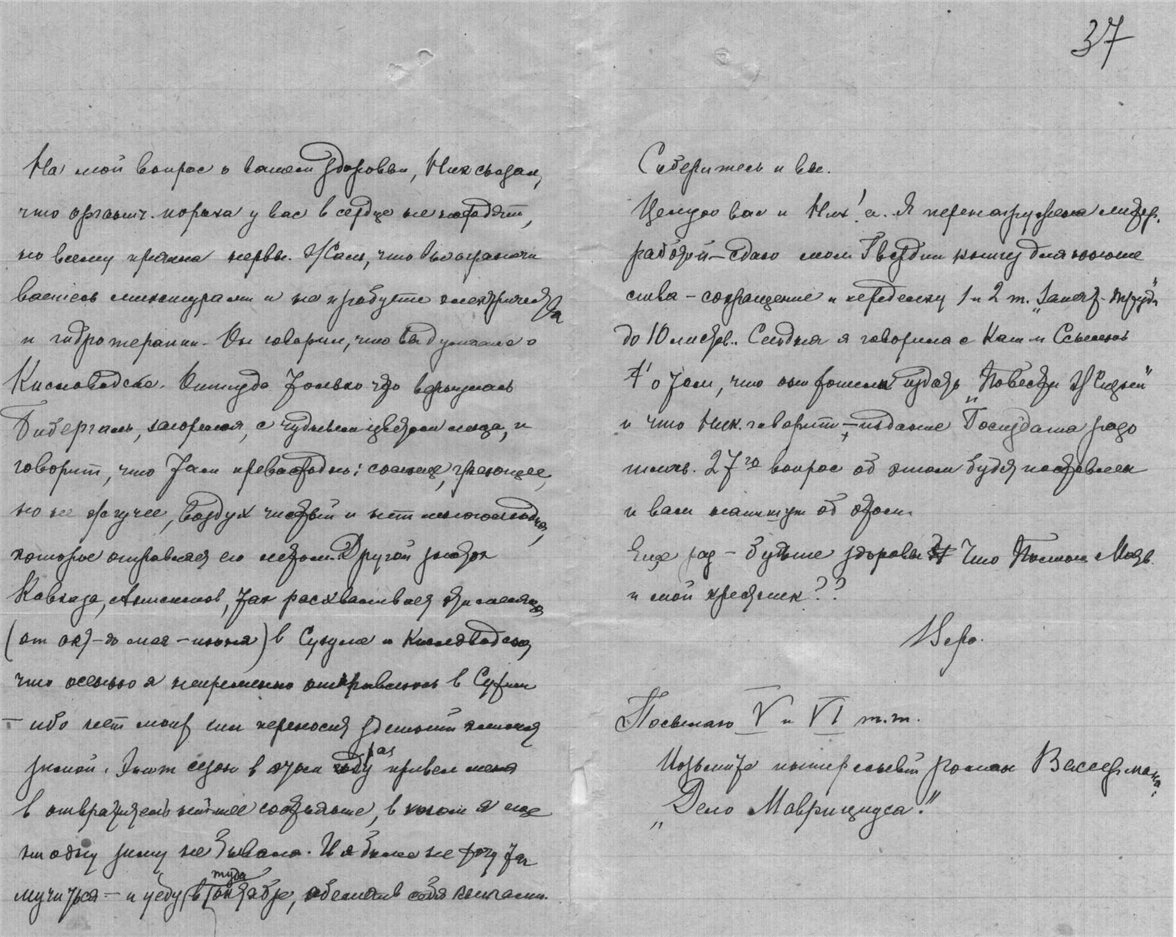 37
На мой вопрос о вашем здоровьи, Ник сказал,
что органич. порока у вас в сердце не находят,
но всему причина нервы. Жаль, что вы ограничи
ваетесь микстурами и не пробуете электричества
и гидротерапии. Он говорил, что вы думаете о
Кисловодске. Оттуда только что вернулась
Биберталь, загорелая, с чудным цветом лица, и
говорит, что там превосходно: солнце, греющее,
но не жгучее, воздух чистый и нет
которое отравляет его летом. Другой знаток
Кавказа, так расхваливает
(от окт-до мая-июня) в Сухуме и Кисловодске
что осенью я непременно отправлюсь в Сухум
— ибо нет моих сил переносить здешний климат
зимой. Этот сезон в этом раз привел меня
в отвратительнейшее состояние, в каком я еще
ни одну зиму не бывала. И я больше не хочу так
мучиться — и уеду туда в октябре, обложив себя книгами.
Соберитесь и вы.
Целую вас и Ник! а. Я перегружена литер.
работой — сдаю Молл. Гвардии книгу для юноше
ства — сокращение и переделку 1 и 2 т. „Запеч. Труда"
до 10 листов. Сегодня я говорила с
о том, что они хотели издать „Повести
и что Ник. говорит — издание Госиздата
27го вопрос об этом будет поставлен
и вам напишут об этом.
Еще раз — будьте здоровы Что
и мой крестник??
Вера.
Посылаю V и VI т.т.
Возьмите интересный роман Вассермана:
„Дело Маврициуса".